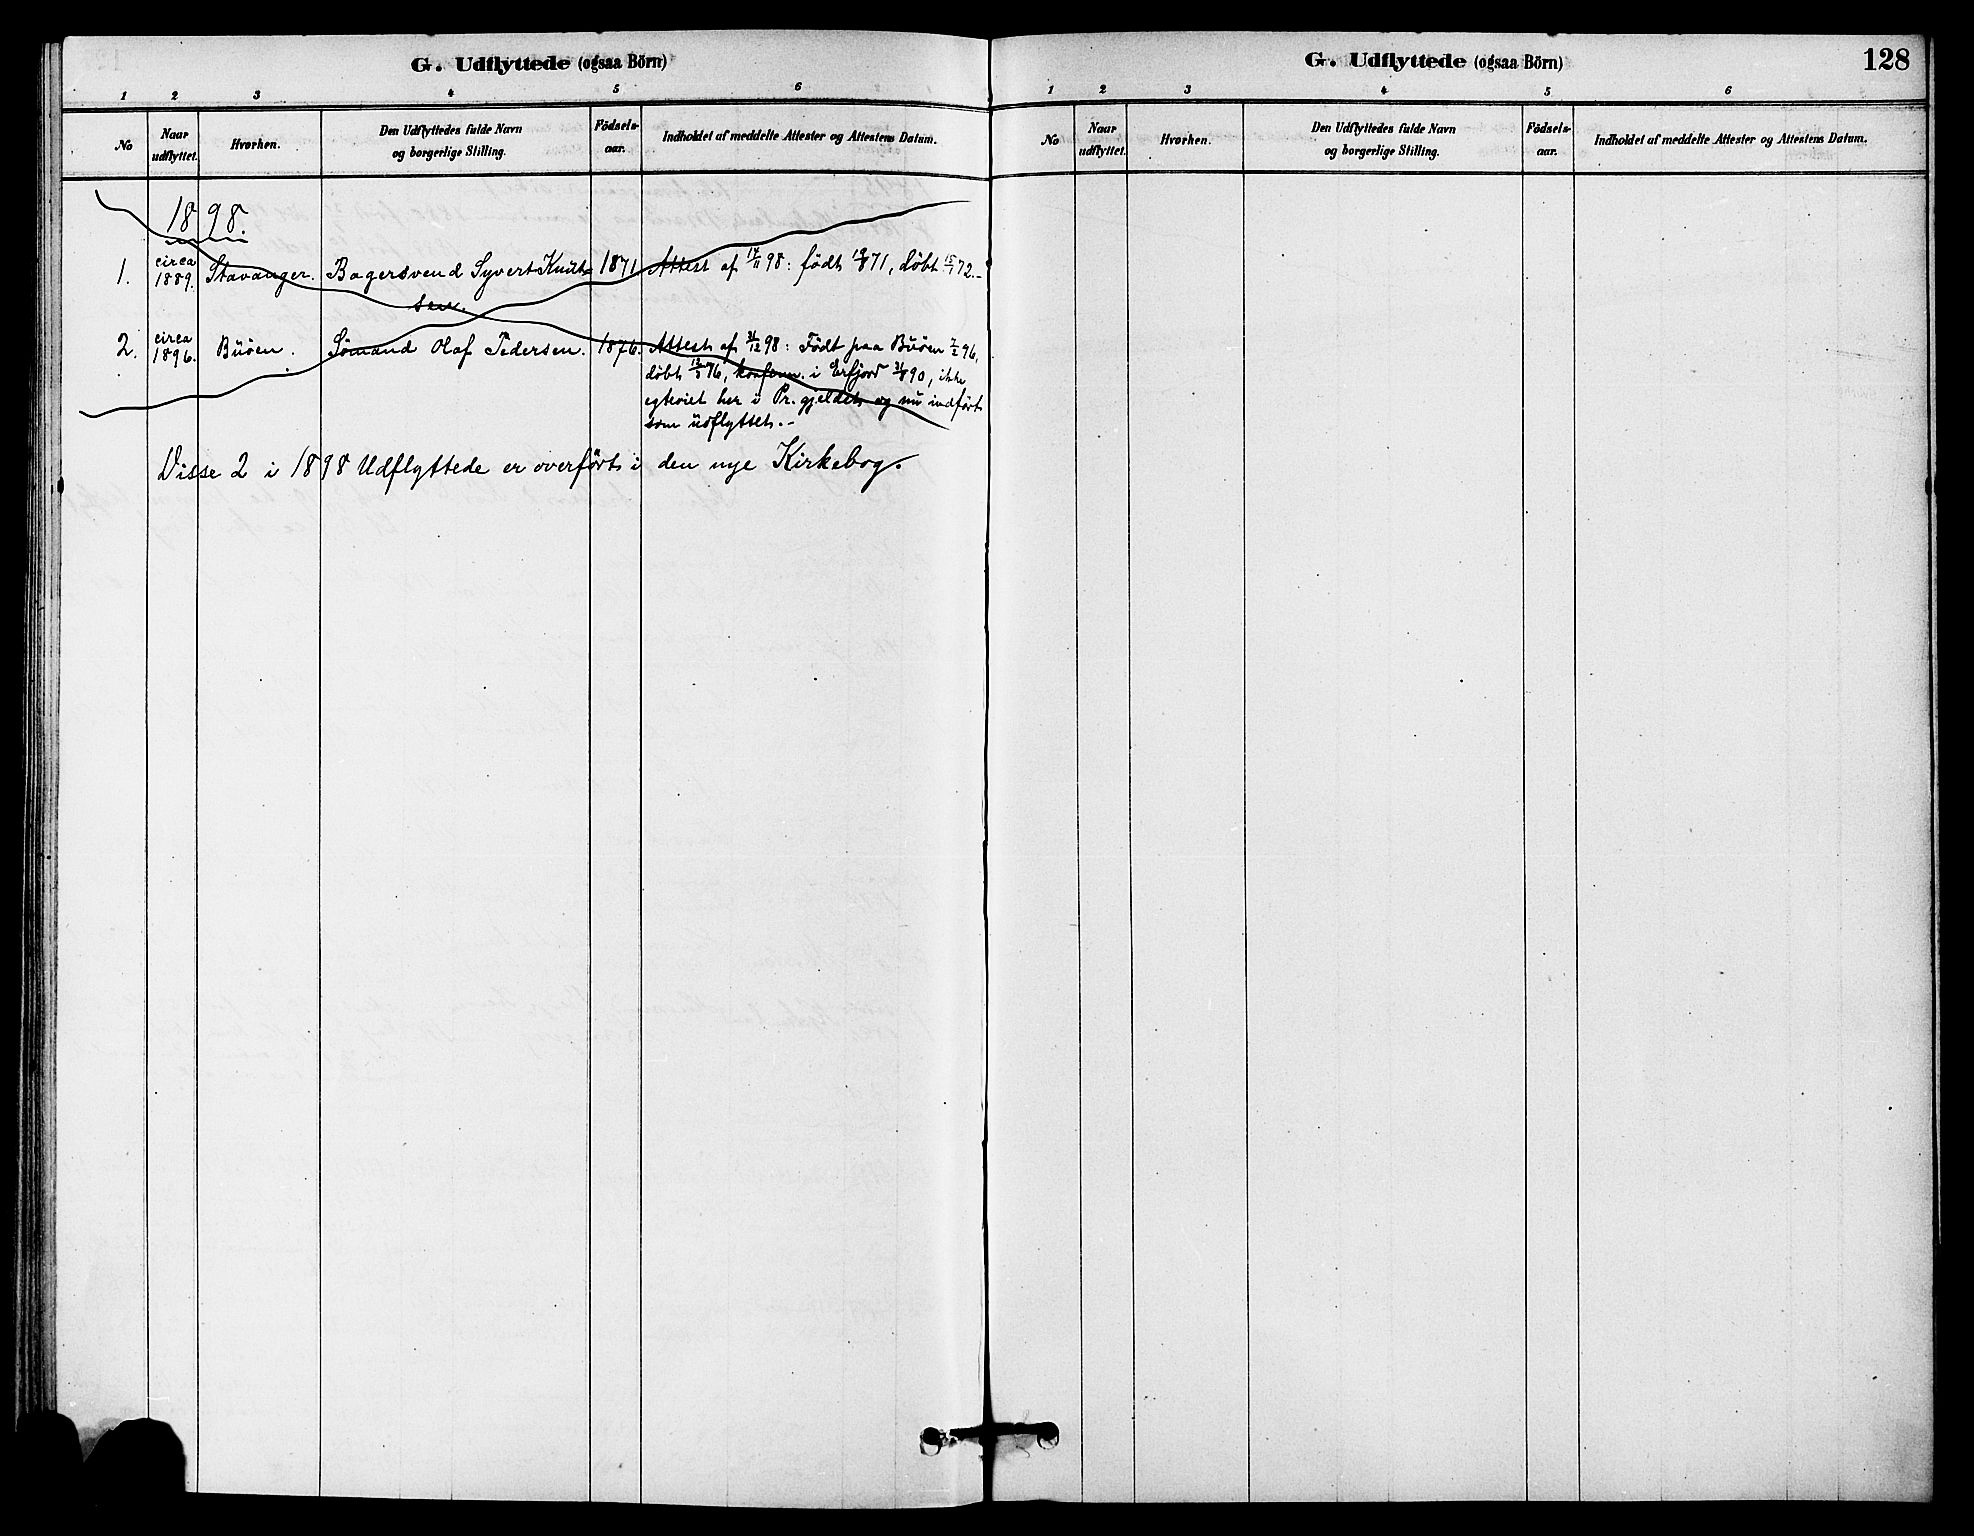 G. Udflyttede (ogsaa Börn)
1 2 3 4 5 6
No
Naar udflyttet.
Hvorhen.
Den Udflyttedes fulde Navn og borgerlige Stilling.
Födsels-aar.
Indholdet af meddelte Attester og Attestens Datum.
1898.
1. circa 1889. Stavanger. Bagersvend Syvert Knut- 1871 Attest af 98: födt 71, döbt 15/1 72.-
sen.
2. circa 1896. Buöen. Sömand Olaf Pedersen. 1876. Attest af 31/12 98: Födt paa Buöen 7/2 96,
döbt 12/3 76, konfirm. i Erfjord 90, ikke
egteviet her i Pr.gjeldet og nu indfört
som udflyttet.-
Disse 2 i 1898 Udflyttede er overfört i den nye Kirkebog.
G. Udflyttede (ogsaa Börn)
128
1 2 3 4 5 6
No
Naar udflyttet.
Hvorhen.
Den Udflyttedes fulde Navn og borgerlige Stilling.
Födsels-aar.
Indholdet af meddelte Attester og Attestens Datum.